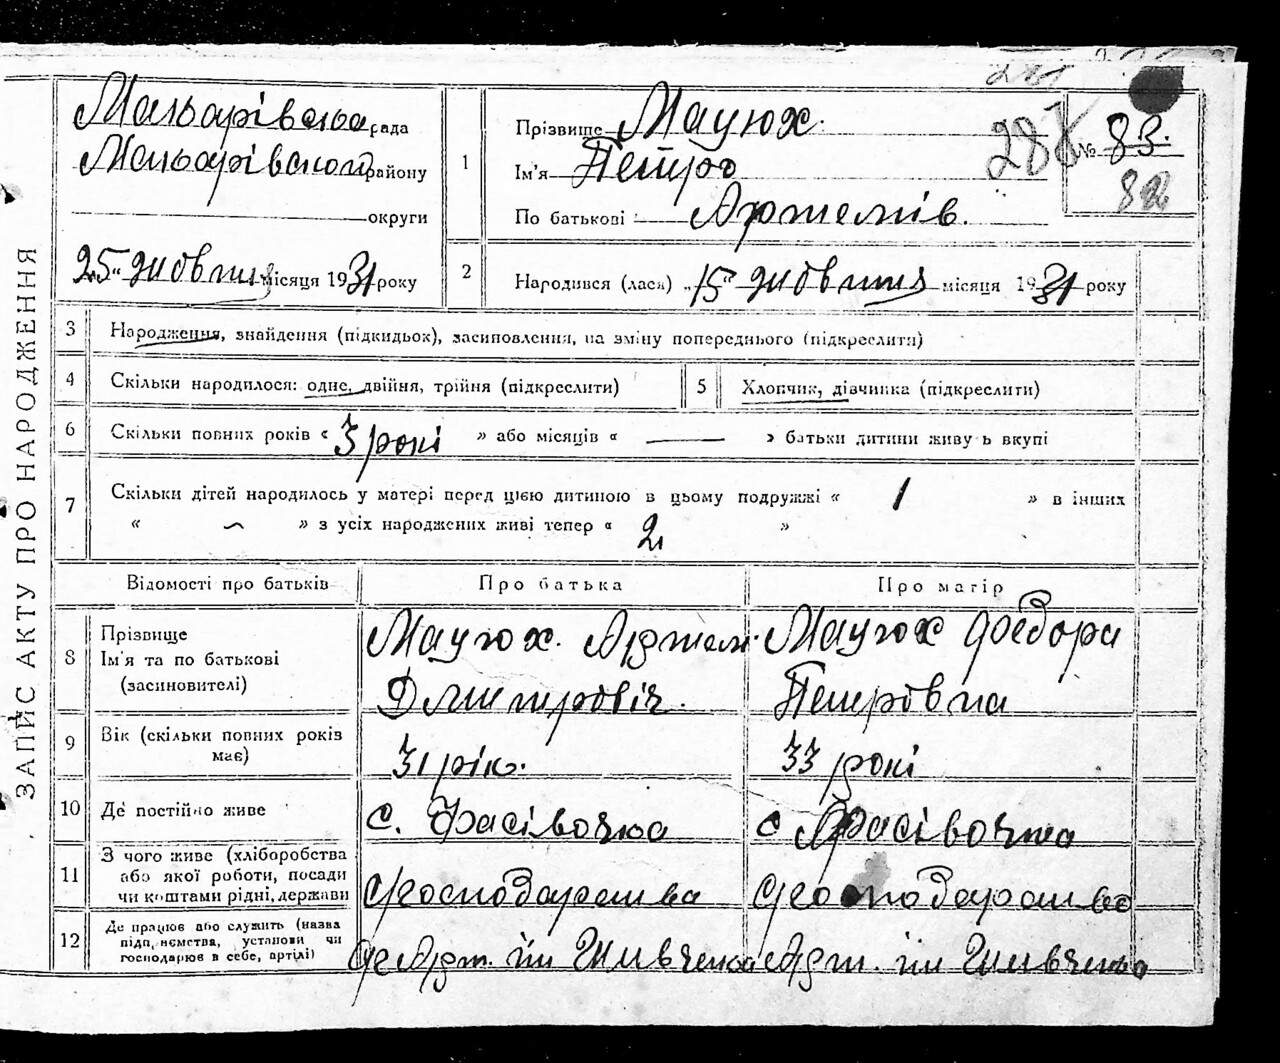 ЗАПИС АКТУ ПРО НАРОДЖЕННЯ
Макарівська рада
Макарівського району
округи
25 жовтня місяця 1931 року
1
Прізвище Мацюх.
Ім'я Петро
По батькові Артемів.
288
№ 83.
82
2
Народився (лася) „15“ жовтня місяця 1931 року
3 Народження, знайдення (підкидьок), засиновлення, на зміну попереднього (підкреслити)
4 Скільки народилося: одне, двійня, трійня (підкреслити)
5 Хлопчик, дівчинка (підкреслити)
6 Скільки повних років « 3 роки » або місяців « — » батьки дитини живуть вкупі
7 Скільки дітей народилось у матері перед цією дитиною в цьому подружжі « 1 » в інших
« — » з усіх народжених живі тепер « 2 »
Відомості про батьків Про батька Про матір
8 Прізвище
Ім'я та по батькові
(засиновителі)
Мацюх. Артем
Дмитровіч.
Мацюх Федора
Петровна
9 Вік (скільки повних років
має)
31 рік. 33 роки
10 Де постійно живе с. Фасівочка с Фасівочка
11 З чого живе (хліборобства
або якої роботи, посади
чи коштами рідні, держави
господарства господарства
12 Де працює або служить (назва
підприємства, установи чи
господарює в себе, артілі)
Арт. ім Шевченка Арт. ім Шевченко